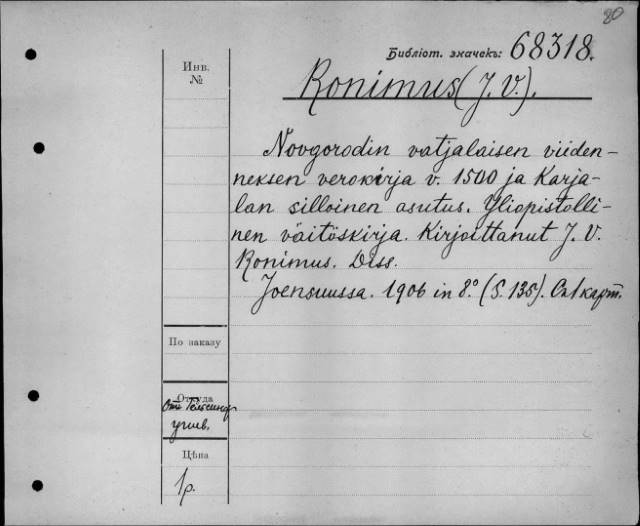 80
Библіот. значекъ: 68318.
Инв.
№
Ronimus (J. V.).
Novgorodin vatjalaisen viiden-
neksen verokirja v. 1500 ja Karja-
lan silloinen asutus. Yliopistolli-
nen väitöskirja. Kirjoittanut J. V.
Ronimus. Diss.
Joensuussa. 1906 in 8.° (S. 135). Съ 1 карт.
По заказу
Откуда
Отъ Гельсингф.
унив.
Цѣна
1 р.